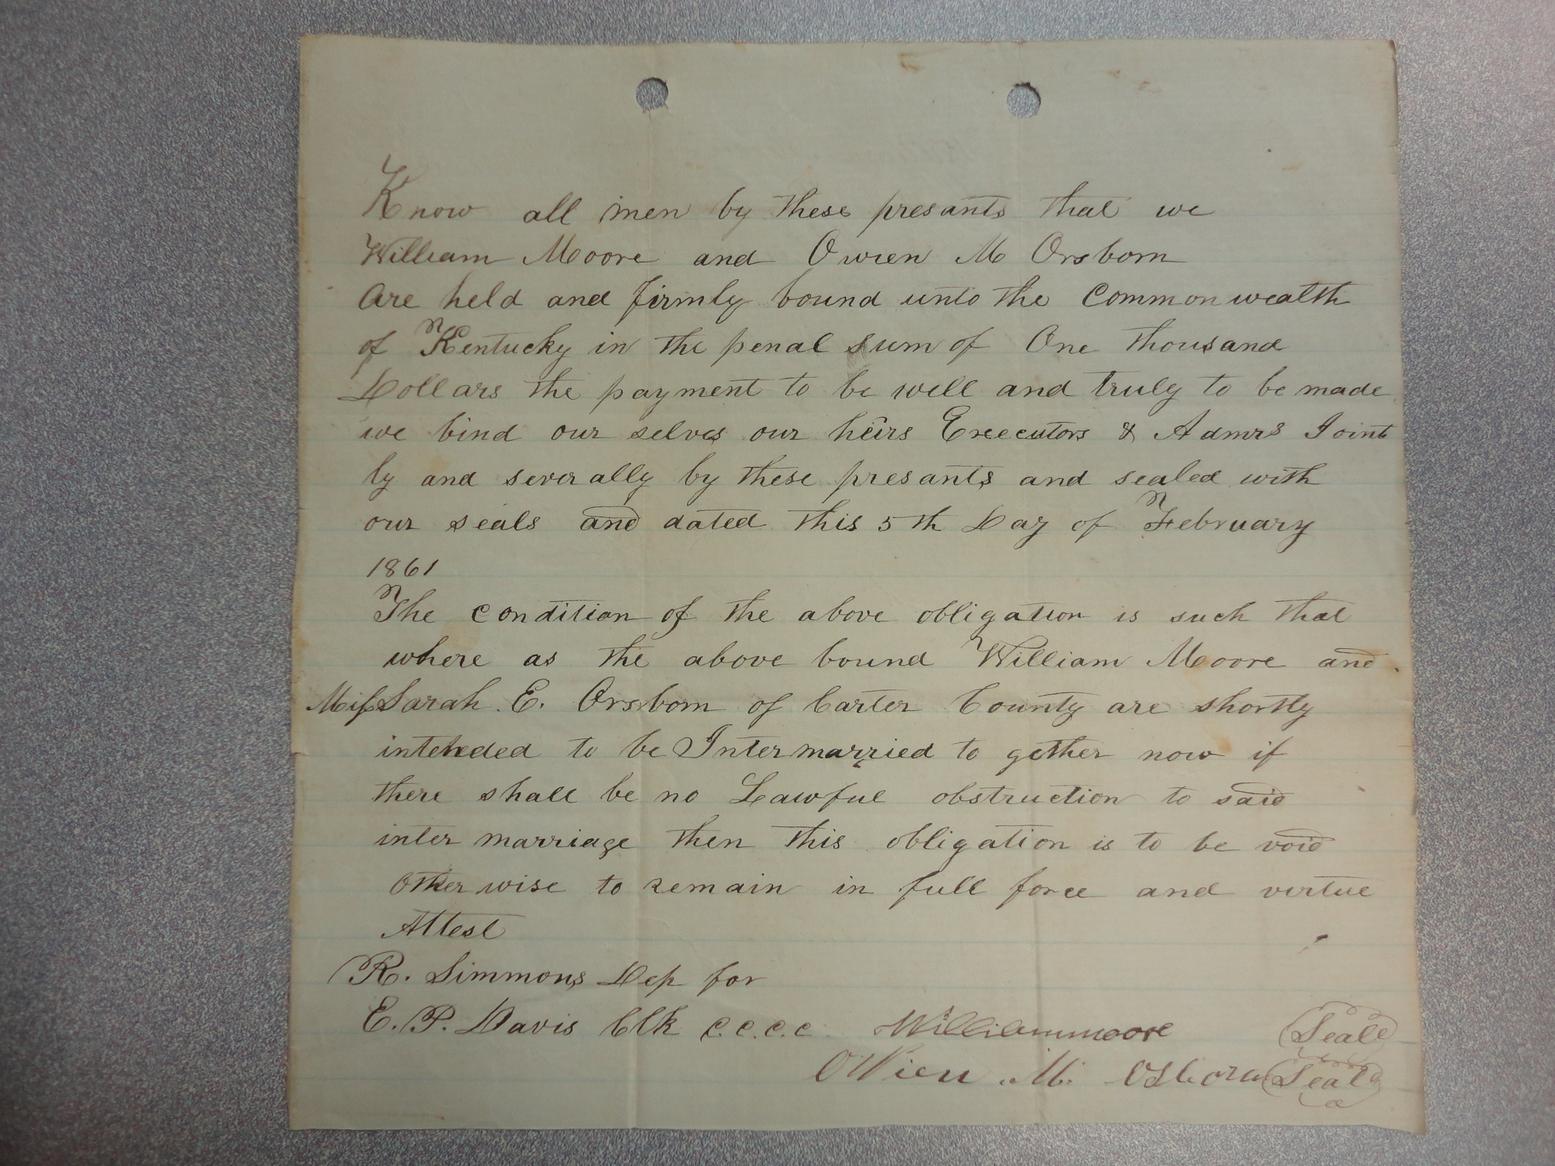 Know all men by these presants that we
William Moore and Owien M Orsborn
Are held and firmly bound unto the Commonwealth
of Kentucky in the penal sum of One thousand
Dollars the payment to be well and truly to be made
we bind our selves our heirs Exeecutors & Admrs Joint
ly and severally by these presants and sealed with
our seals and dated this 5th Day of February
1861
The condition of the above obligation is such that
where as the above bound William Moore and
Miss Sarah E. Orsborn of Carter County are shortly
intended to be Intermarried to gether now if
there shall be no Lawful obstruction to said
inter marriage then this obligation is to be void
Otherwise to remain in full force and virtue
Attest
R. Simmons Dep for
E. P. Davis Clk C.C.C.C William moore Seal
Owien M. Osborn Seal